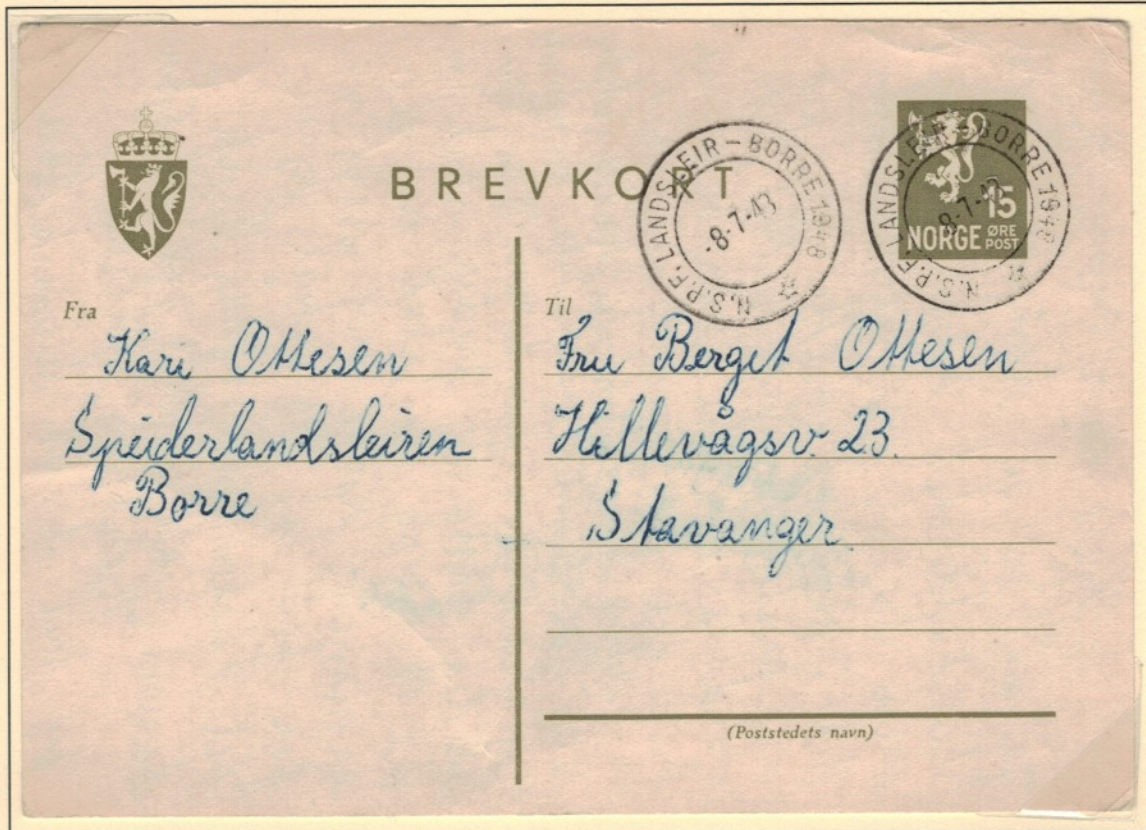 BREVKORT
N.S.P.F. LANDSLEIR – BORRE 1948
-8-7-43
N.S.P.F. LANDSLEIR – BORRE 1948
-8-7-43
15
NORGE ØRE POST
Fra
Kari Ottesen
Speiderlandsleiren
Borre
Til
Fru Bergit Ottesen
Hillevågsv. 23.
Stavanger
(Poststedets navn)